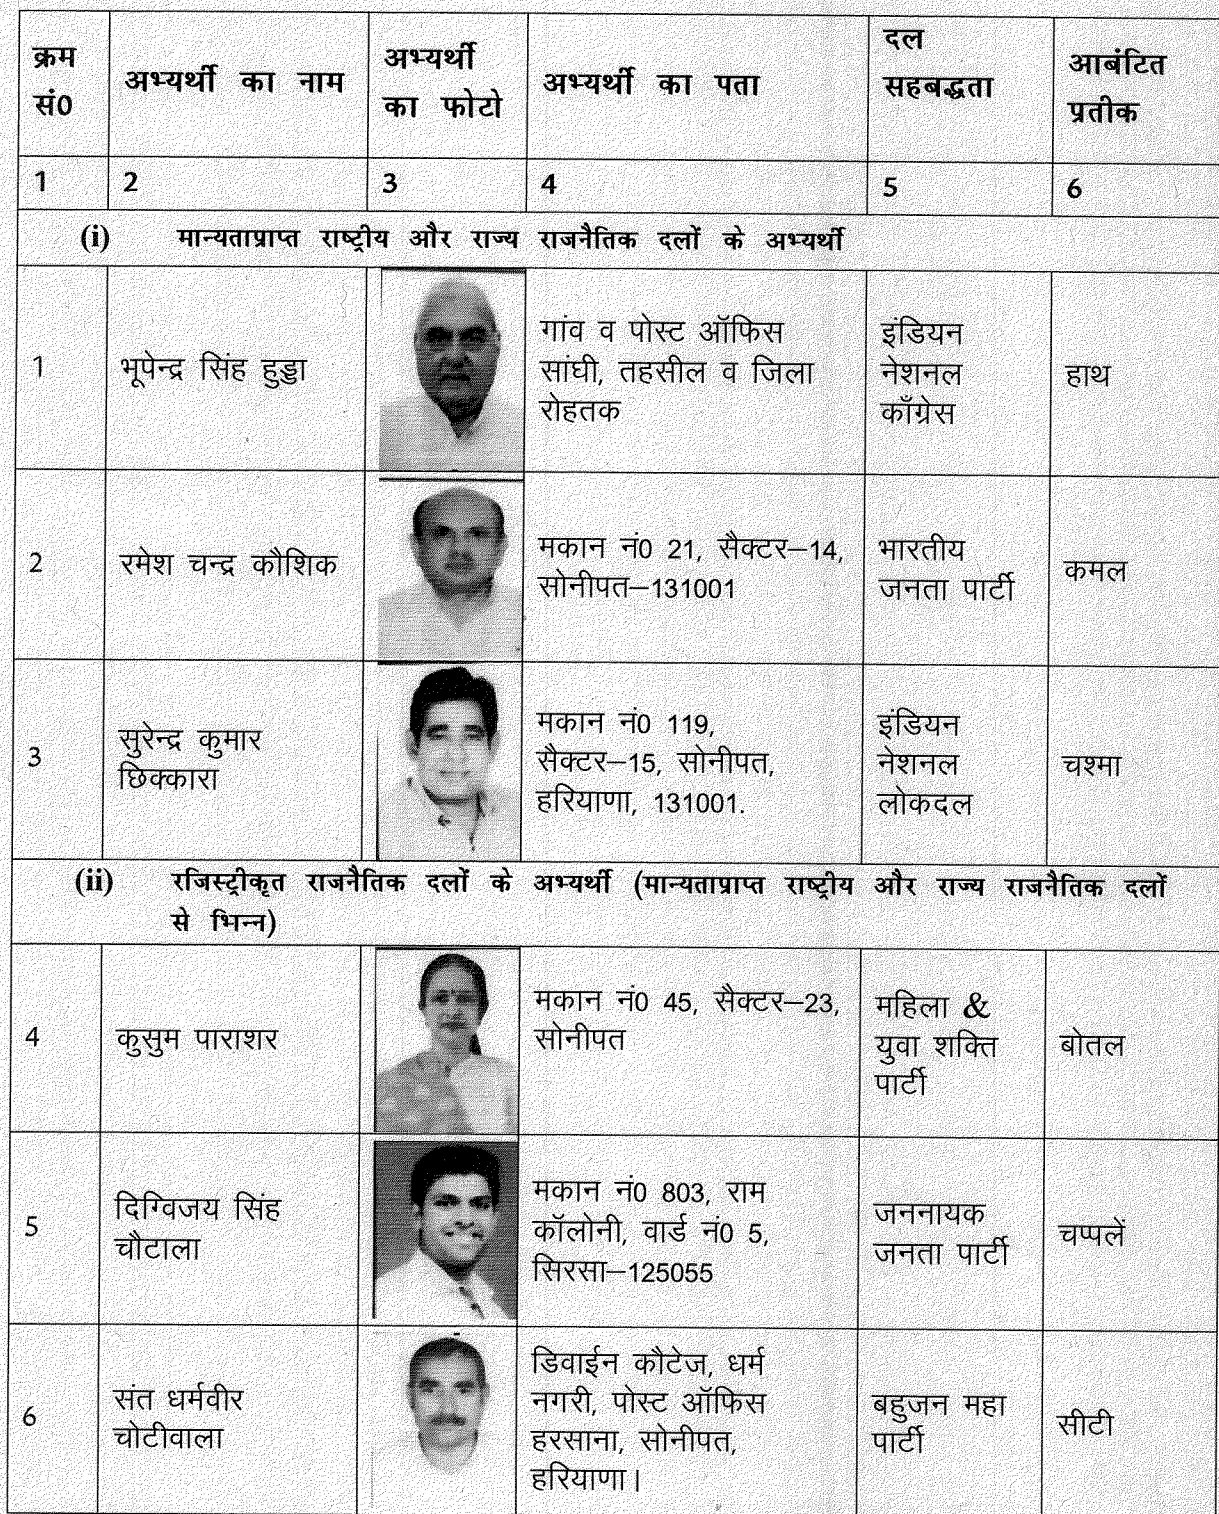 क्रम सं0
अभ्यर्थी का नाम
अभ्यर्थी का फोटो
अभ्यर्थी का पता
दल सहबद्धता
आबंटित प्रतीक
1 2 3 4 5 6
(i) मान्यताप्राप्त राष्ट्रीय और राज्य राजनैतिक दलों के अभ्यर्थी
1
भूपेन्द्र सिंह हुड्डा
गांव व पोस्ट ऑफिस
सांघी, तहसील व जिला
रोहतक
इंडियन
नेशनल
काँग्रेस
हाथ
2
रमेश चन्द्र कौशिक
मकान नं0 21, सैक्टर–14,
सोनीपत–131001
भारतीय
जनता पार्टी
कमल
3
सुरेन्द्र कुमार
छिक्कारा
मकान नं0 119,
सैक्टर–15, सोनीपत,
हरियाणा, 131001.
इंडियन
नेशनल
लोकदल
चश्मा
(ii) रजिस्ट्रीकृत राजनैतिक दलों के अभ्यर्थी (मान्यताप्राप्त राष्ट्रीय और राज्य राजनैतिक दलों
से भिन्न)
4
कुसुम पाराशर
मकान नं0 45, सैक्टर–23,
सोनीपत
महिला &
युवा शक्ति
पार्टी
बोतल
5
दिग्विजय सिंह
चौटाला
मकान नं0 803, राम
कॉलोनी, वार्ड नं0 5,
सिरसा–125055
जननायक
जनता पार्टी
चप्पलें
6
संत धर्मवीर
चोटीवाला
डिवाईन कौटेज, धर्म
नगरी, पोस्ट ऑफिस
हरसाना, सोनीपत,
हरियाणा।
बहुजन महा
पार्टी
सीटी